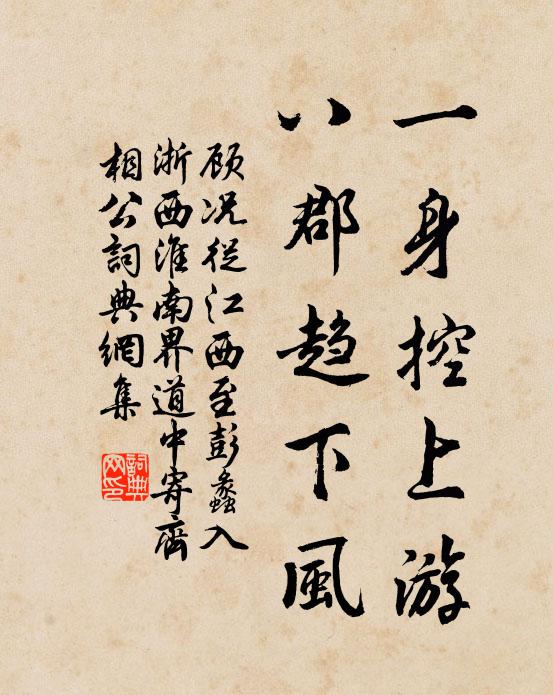 一身控上游
八郡趋下風
顾况從江西至彭蠡入
浙西淮南界道中寄齊
相公詞典網集
詞典
网印